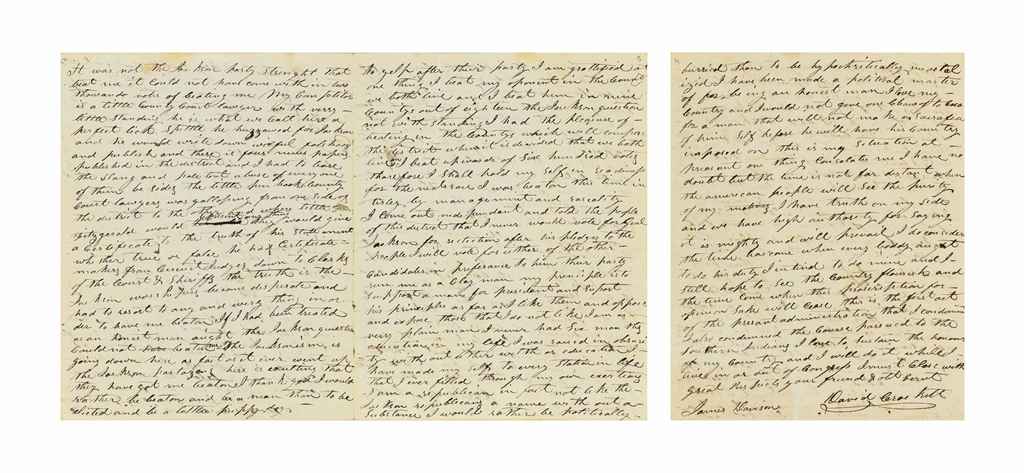 It was not the Jackson party strength that
beat me it could not have come with in two
thousands votes of beating me My Competitor
is a little County Court lawyer with verry
little standing he is what we call here a
perfect lick spittle he huzzawed for Jackson
and he would write down
and publish and there is four news papers
published in the district and I had to take
the Slang and abuse of everyone
of them besides the little pin hook County
Court lawyers was galloping from one side of
the district to the other where little
Fitzgerald would that would give
a Certificate to the truth of his Statement
whether true or false he had Certificate
makers from Circuit Judges down to Clarks
of the Court & Sheriffs the truth is the
Jackson worshipers became desperate and
had to resort to any and every thing in or
der to have me beaten If I had been treated
as an honest man ought the Jackson question
Could not have beaten me Jacksonism is
going down here as fast as it ever went up
the Jackson here is exulting that
they have got me beaten I thank god I would
rather be beaten and be a man than to be
elected and be a little puppy dog
to yelp after their party I am gratifyed at
one thing I beat my oponent in the County
we both live and I beat him in nine
Countys out of eighteen the Jackson question
not with standing I had the pleasure of
beating in the Countys which will compose
the District when it is divided that we both
live I beat upwards of Six hundred votes
therefore I Shall hold my Self in readiness
for the next race I was beaten this time in
by management and rascality
I come out independant and told the people
of this district that I never would vote for Genl
Jackson for relection after his pledge to the
people I will vote for either of the other
Candidates in preferance to him their party
run me as a Clay man my principle is to
Support a man for president and Suport
his principles so far as I like them and oppose
and expose those that I do not like I am a
very plain man I never had Six months
education in my life I was raised in obscuri
ty with out either wealth or education I
have made my Self to every station in life
that I ever filled through my own exertions
I am a republican in fact not like the
Jackson republicans a name with out a
Substance I would rather be politically
burried than to be hypochritically imortal
ized I have been made a political martyr
of for being an honest man I love my
Country and I would not give one
for a man that will not make a Sacrafise
of him Self before he will have his Country
imposed on this is my Situation at
preasant one thing Consolates me I have no
doubt but the time is not far distant when
the american people will See the purity
of my motives I have truth on my Side
and we have high authority for Saying
it is mighty and will prevail I do consider
the time has come when every boddy aught
to do his duty I intend to do mine and I
Still hope to See the Country flourish and
the time come when this proscription for
opinion Sake will Cease this is the first act
of the preasant administration that I condemn
I also condemn the Course persued to the
Southern Indians I love to Sustain the honour
of my Country and I will do it while I
live in or out of Congress I must Close with
great Respects your friend & obt Servt
James Davison David Crockett